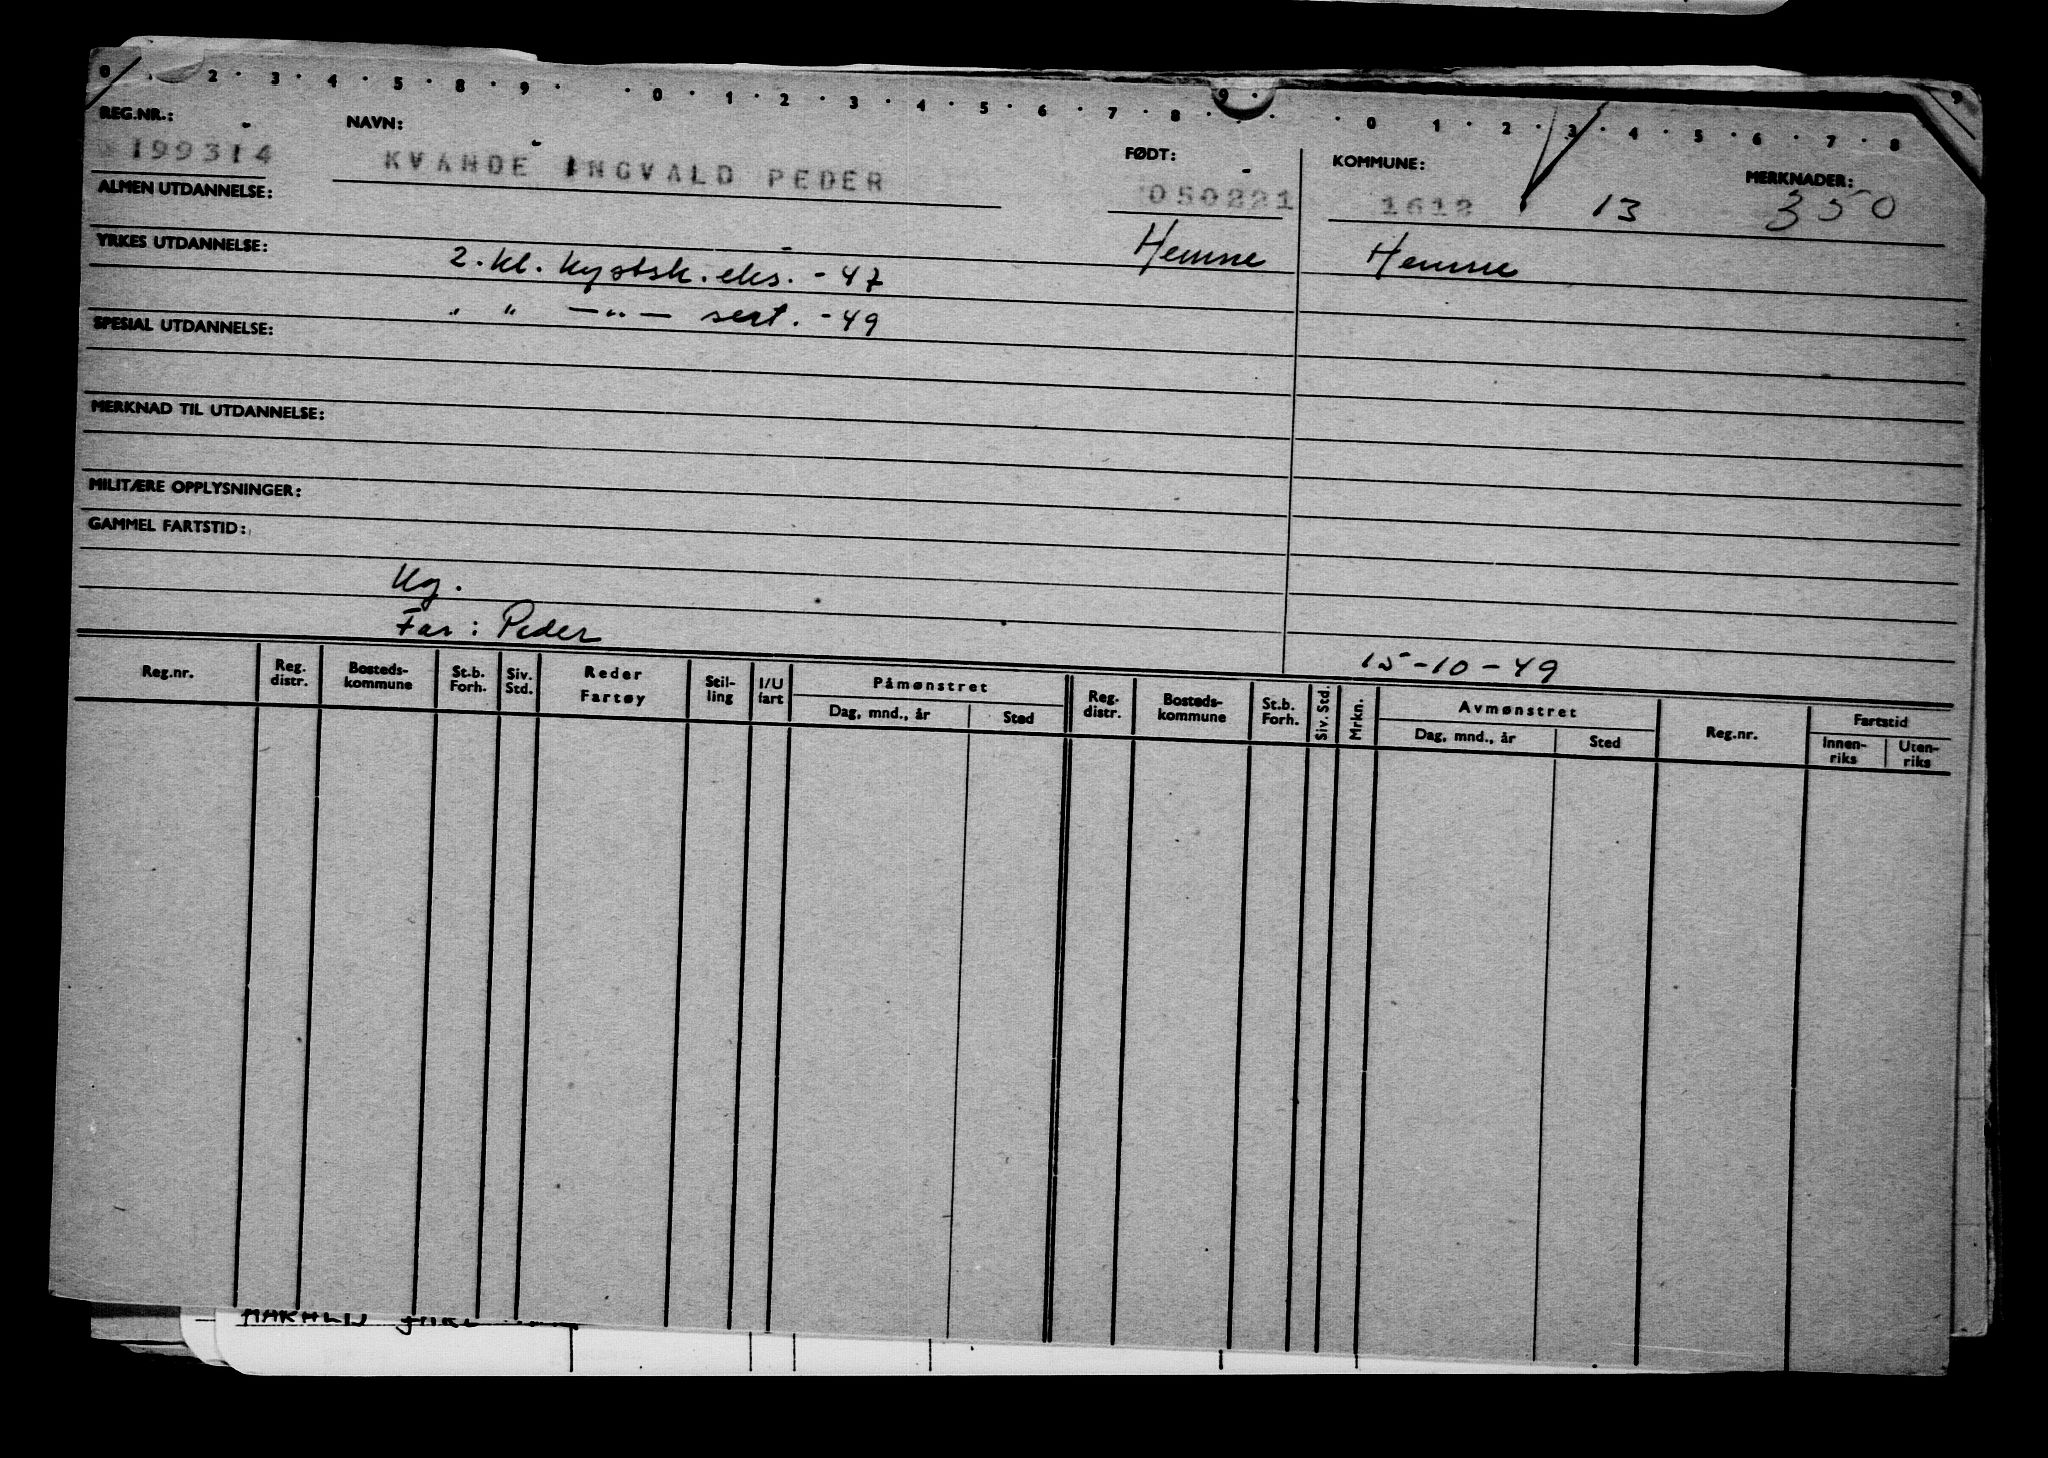 0 2 · 3 · 4 · 5 · 8 · 9 · · 0 · 1 · 2 · 3 · 4 · 5 · 6 · 7 · 8 · 9 · · 0 · 1 · 2 · 3 · 4 · 5 · 6 · 7 · 8 9
REG.NR.: NAVN: FØDT: KOMMUNE: MERKNADER:
199314 KVANDE INGVALD PEDER 050221 1612 13 350
ALMEN UTDANNELSE:
Hemne Hemne
YRKES UTDANNELSE: 2. kl. kystsk. eks. - 47
" " — " — sert. - 49
SPESIAL UTDANNELSE:
MERKNAD TIL UTDANNELSE:
MILITÆRE OPPLYSNINGER:
GAMMEL FARTSTID:
Ug.
Far: Peder
15-10-49
Reg.nr. Reg. distr. Bosteds-kommune St.b. Forh. Siv. Std. Reder Fartøy Stil-ling I/U fart Påmønstret Dag, mnd., år Sted Reg. distr. Bosteds-kommune St.b. Forh. Siv. Std. Mrkn. Avmønstret Dag, mnd., år Sted Reg.nr. Fartstid Innen-riks Uten-riks